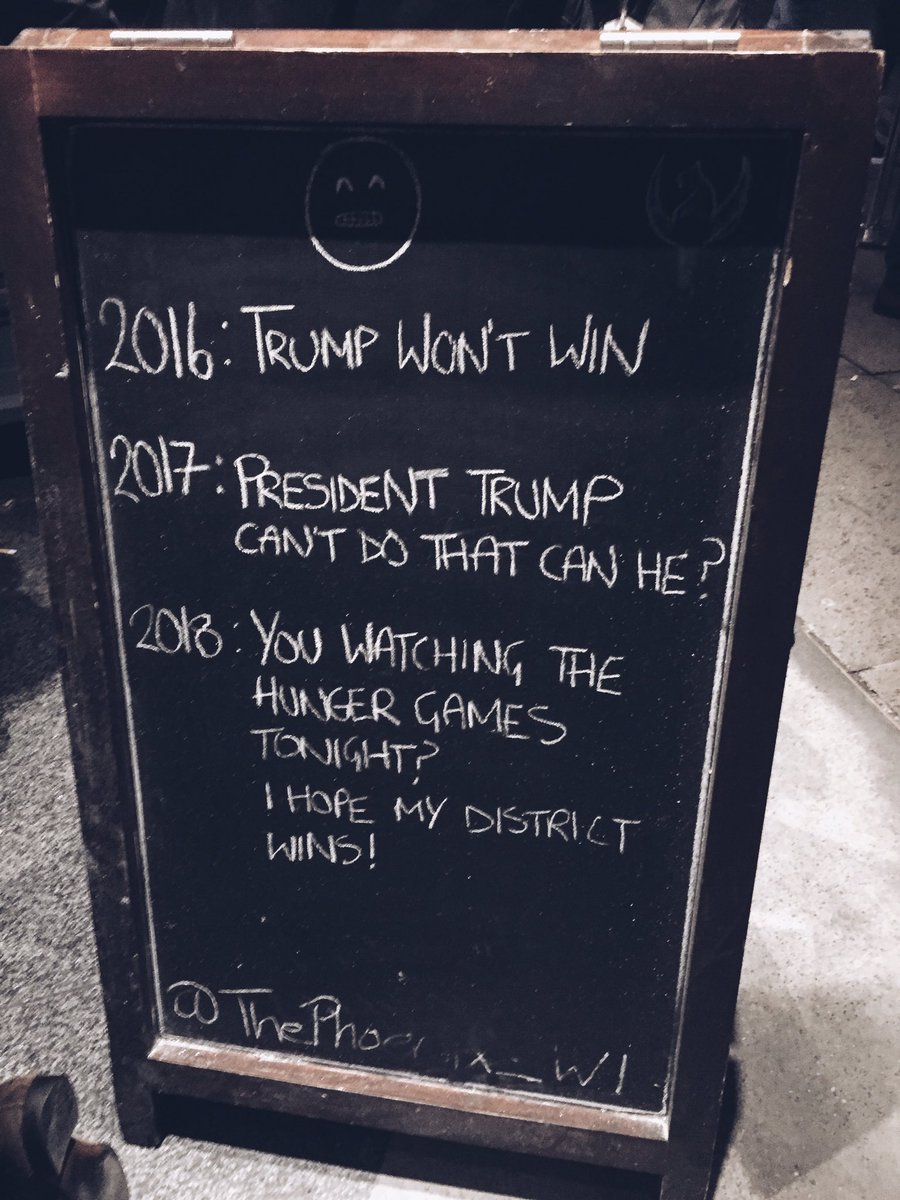 2016: TRUMP WON'T WIN
2017: PRESIDENT TRUMP
CAN'T DO THAT CAN HE?
2018: YOU WATCHING THE
HUNGER GAMES
TONIGHT?
I HOPE MY DISTRICT
WINS!